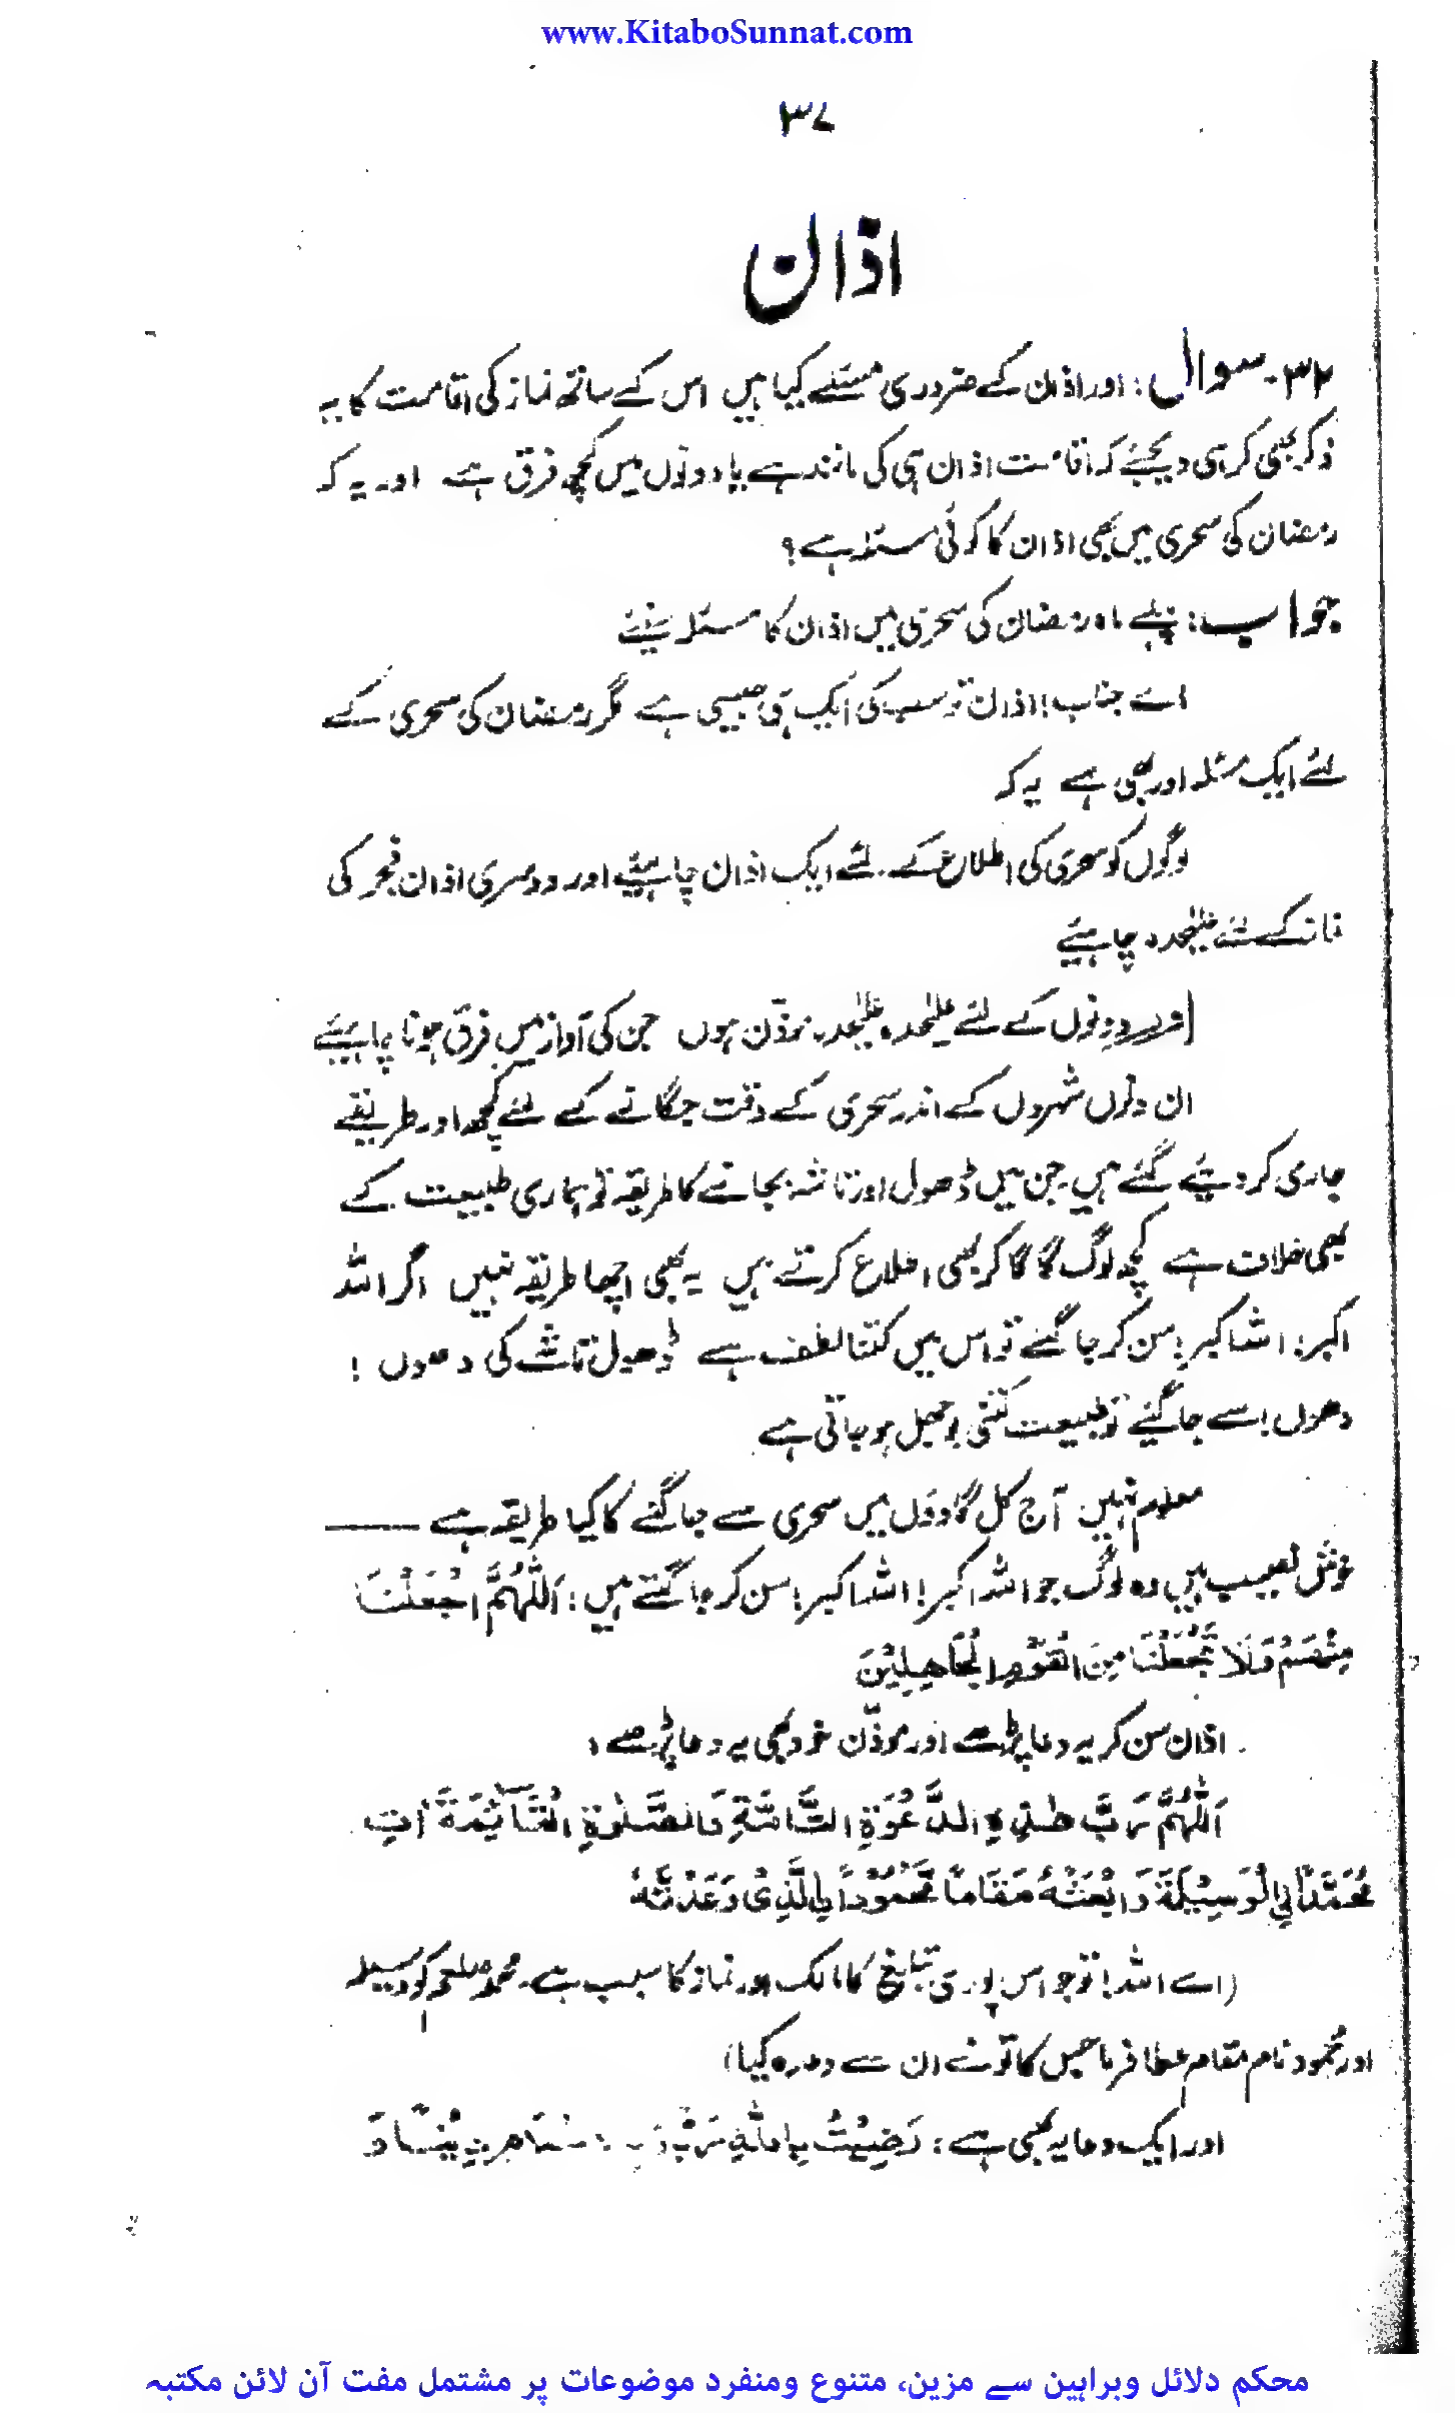 www.KitaboSunnat.com
۳۷
اذان
۳۲۔ سوال: اور اذان کے ضروری مسئلے کیا ہیں اس کے ساتھ نماز کی اقامت کا یہ
ذکر بھی کر ہی دیجئے کہ اقامت اذان ہی کی مانند ہے یا دونوں میں کچھ فرق ہے اور یہ کہ
رمضان کی سحری میں بھی اذان کا کوئی مسئلہ ہے؟
جواب: پہلے ماہ رمضان کی سحری میں اذان کا مسئلہ سنیئے
اے جناب! اذان تو سب کی ایک ہی جیسی ہے مگر رمضان کی سحری کے
لئے ایک مسئلہ اور بھی ہے یہ کہ
لوگوں کو سحری کی اطلاع کے لئے ایک اذان چاہیئے اور دوسری اذان فجر کی
نماز کے لئے علیٰحدہ چاہیئے
اور دونوں کے لئے علیٰحدہ علیٰحدہ مؤذن ہوں جن کی آواز میں فرق ہونا چاہیئے
ان دنوں شہروں کے اندر سحری کے وقت جگانے کے لئے کچھ اور طریقے
جاری کر دیئے گئے ہیں جن میں ڈھول اور تاشہ بجانے کا طریقہ تو ہماری طبیعت کے
بھی خلاف ہے کچھ لوگ گا گا کر بھی اطلاع کرتے ہیں یہ بھی اچھا طریقہ نہیں اگر اللہ
اکبر! اللہ اکبر! سن کر جاگئے تو اس میں کتنا لطف ہے ڈھول تاشے کی دھوں!
دھوں! سے جاگیئے تو طبیعت کتنی بوجھل ہو جاتی ہے
معلوم نہیں آج کل گاووں میں سحری سے جاگنے کا کیا طریقہ ہے ——
خوش نصیب ہیں وہ لوگ جو اللہ اکبر! اللہ اکبر! سن کر جاگتے ہیں! اَللّٰهُمَّ اجْعَلْنَا
مِنْهُمْ وَلَا تَجْعَلْنَا مِنَ الْقَوْمِ الْجَاهِلِيْنَ
اذان سن کر یہ دعا پڑھے اور مؤذّن خود بھی یہ دعا پڑھے:
اَللّٰهُمَّ رَبَّ هٰذِهِ الدَّعْوَةِ التَّامَّةِ وَالصَّلٰوةِ الْقَآئِمَةِ اٰتِ
مُحَمَّدَانِ الْوَسِيْلَةَ وَابْعَثْهُ مَقَامًا مَّحْمُوْدَانِ الَّذِىْ وَعَدْتَّهٗ
(اے اللہ! تو جو اس پوری تبلیغ کا مالک اور نماز کا سبب ہے۔ محمد صلعم کو وسیلہ
اور محمود نام مقام عطا فرما جس کا تو نے ان سے وعدہ کیا)
اور ایک دعا یہ بھی ہے: رَضِيْتُ بِاللّٰهِ رَبًّا دِيْنًا وَ
محکم دلائل وبراہین سے مزین، متنوع ومنفرد موضوعات پر مشتمل مفت آن لائن مکتبہ